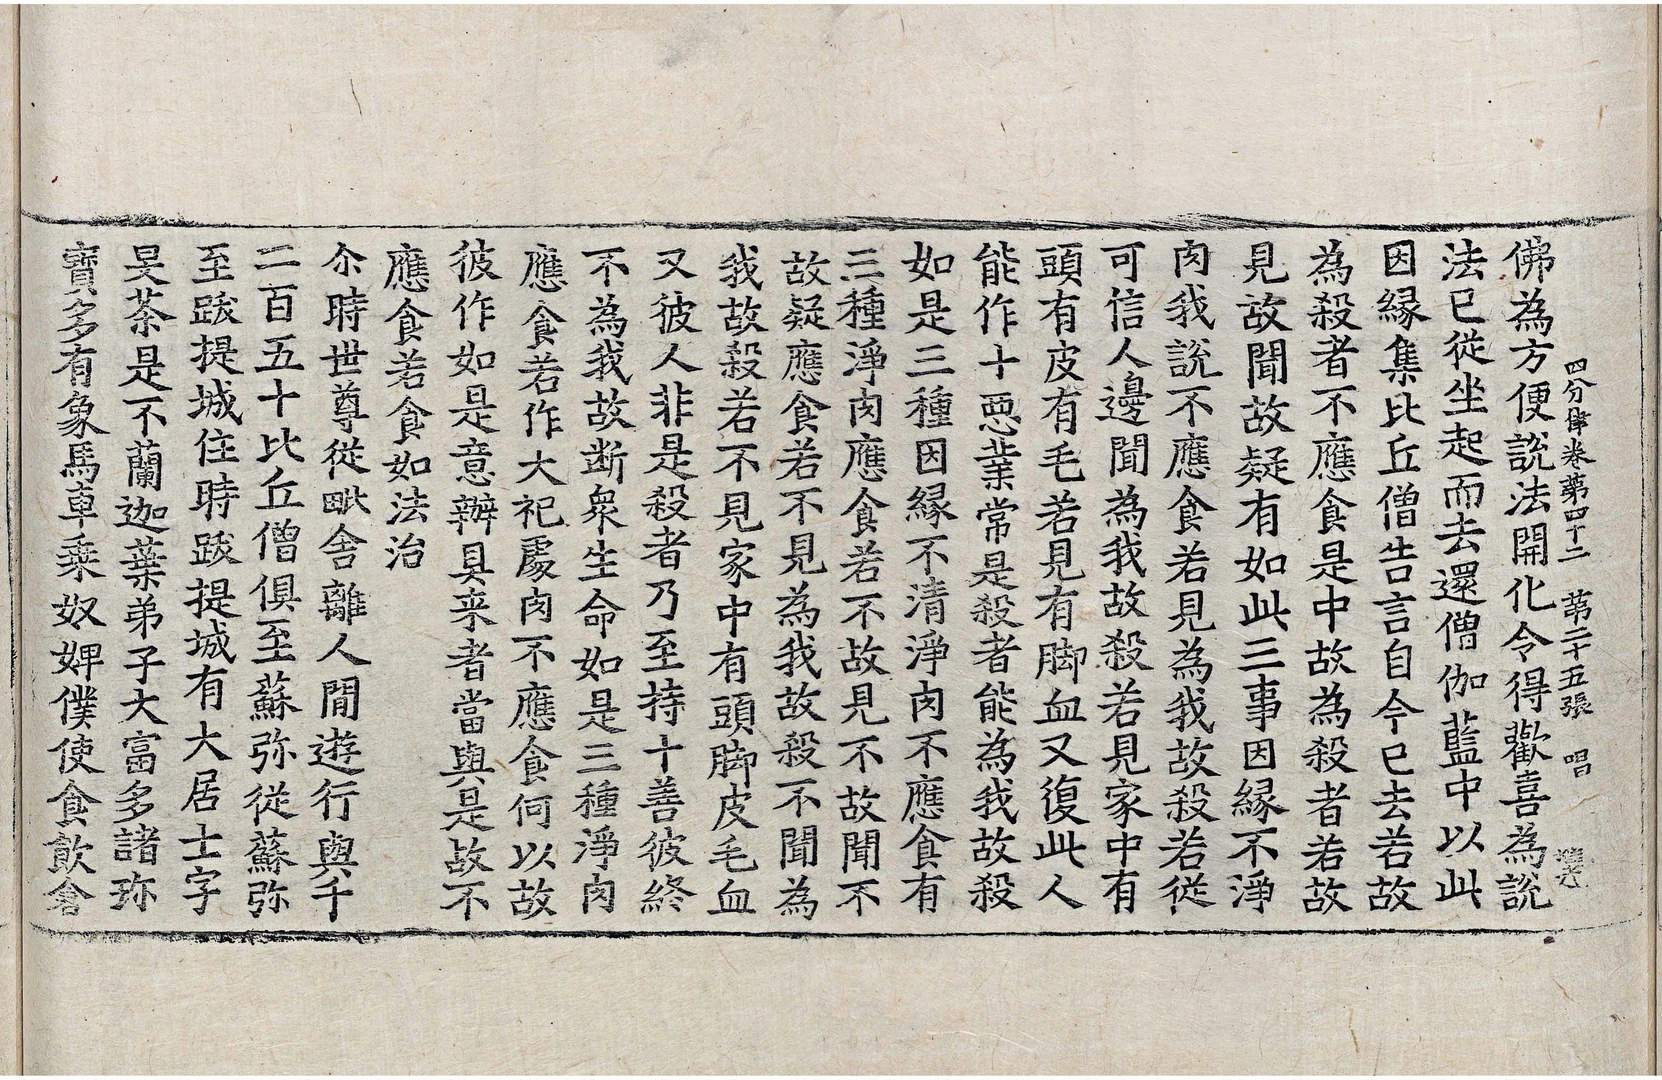 四分律卷第四十二 第二十五張 唱
佛為方便說法開化令得歡喜為說
法已從坐起而去還僧伽藍中以此
因緣集比丘僧告言自今已去若故
為殺者不應食是中故為殺者若故
見故聞故疑有如此三事因緣不淨
肉我說不應食若見為我故殺若從
可信人邊聞為我故殺若見家中有
頭有皮有毛若見有脚血又復此人
能作十惡業常是殺者能為我故殺
如是三種因緣不清淨肉不應食有
三種淨肉應食若不故見不故聞不
故疑應食若不見為我故殺不聞為
我故殺若不見家中有頭脚皮毛血
又彼人非是殺者乃至持十善彼終
不為我故断衆生命如是三種淨肉
應食若作大祀處肉不應食何以故
彼作如是意辦具来者當與是故不
應食若食如法治
尒時世尊從毗舍離人間遊行與千
二百五十比丘僧俱至蘇弥從蘇弥
至跋提城住時跋提城有大居士字
旻荼是不蘭迦葉弟子大富多諸珎
寶多有象馬車乗奴婢僕使食飲倉